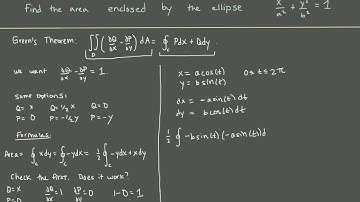 Find the area enclosed by the ellipse x²/a² + y²/b² = 1
Green's Theorem: ∬_D (∂Q/∂x - ∂P/∂y) dA = ∮_C Pdx + Qdy
We want ∂Q/∂x - ∂P/∂y = 1.
Some options:
Q = X Q = 1/2 X Q = 0
P = 0 P = -1/2 y P = -y
Formulas:
Area = ∮ x dy = ∮ -y dx = 1/2 ∮ -y dx + x dy
Check the first. Does it work?
Q = X ∂Q/∂x = 1 ∂P/∂y = 0 1 - 0 = 1
P = 0
x = a cos(t) 0 ≤ t ≤ 2π
y = b sin(t)
dx = -a sin(t) dt
dy = b cos(t) dt
1/2 ∮ -b sin(t) (-a sin(t)) d